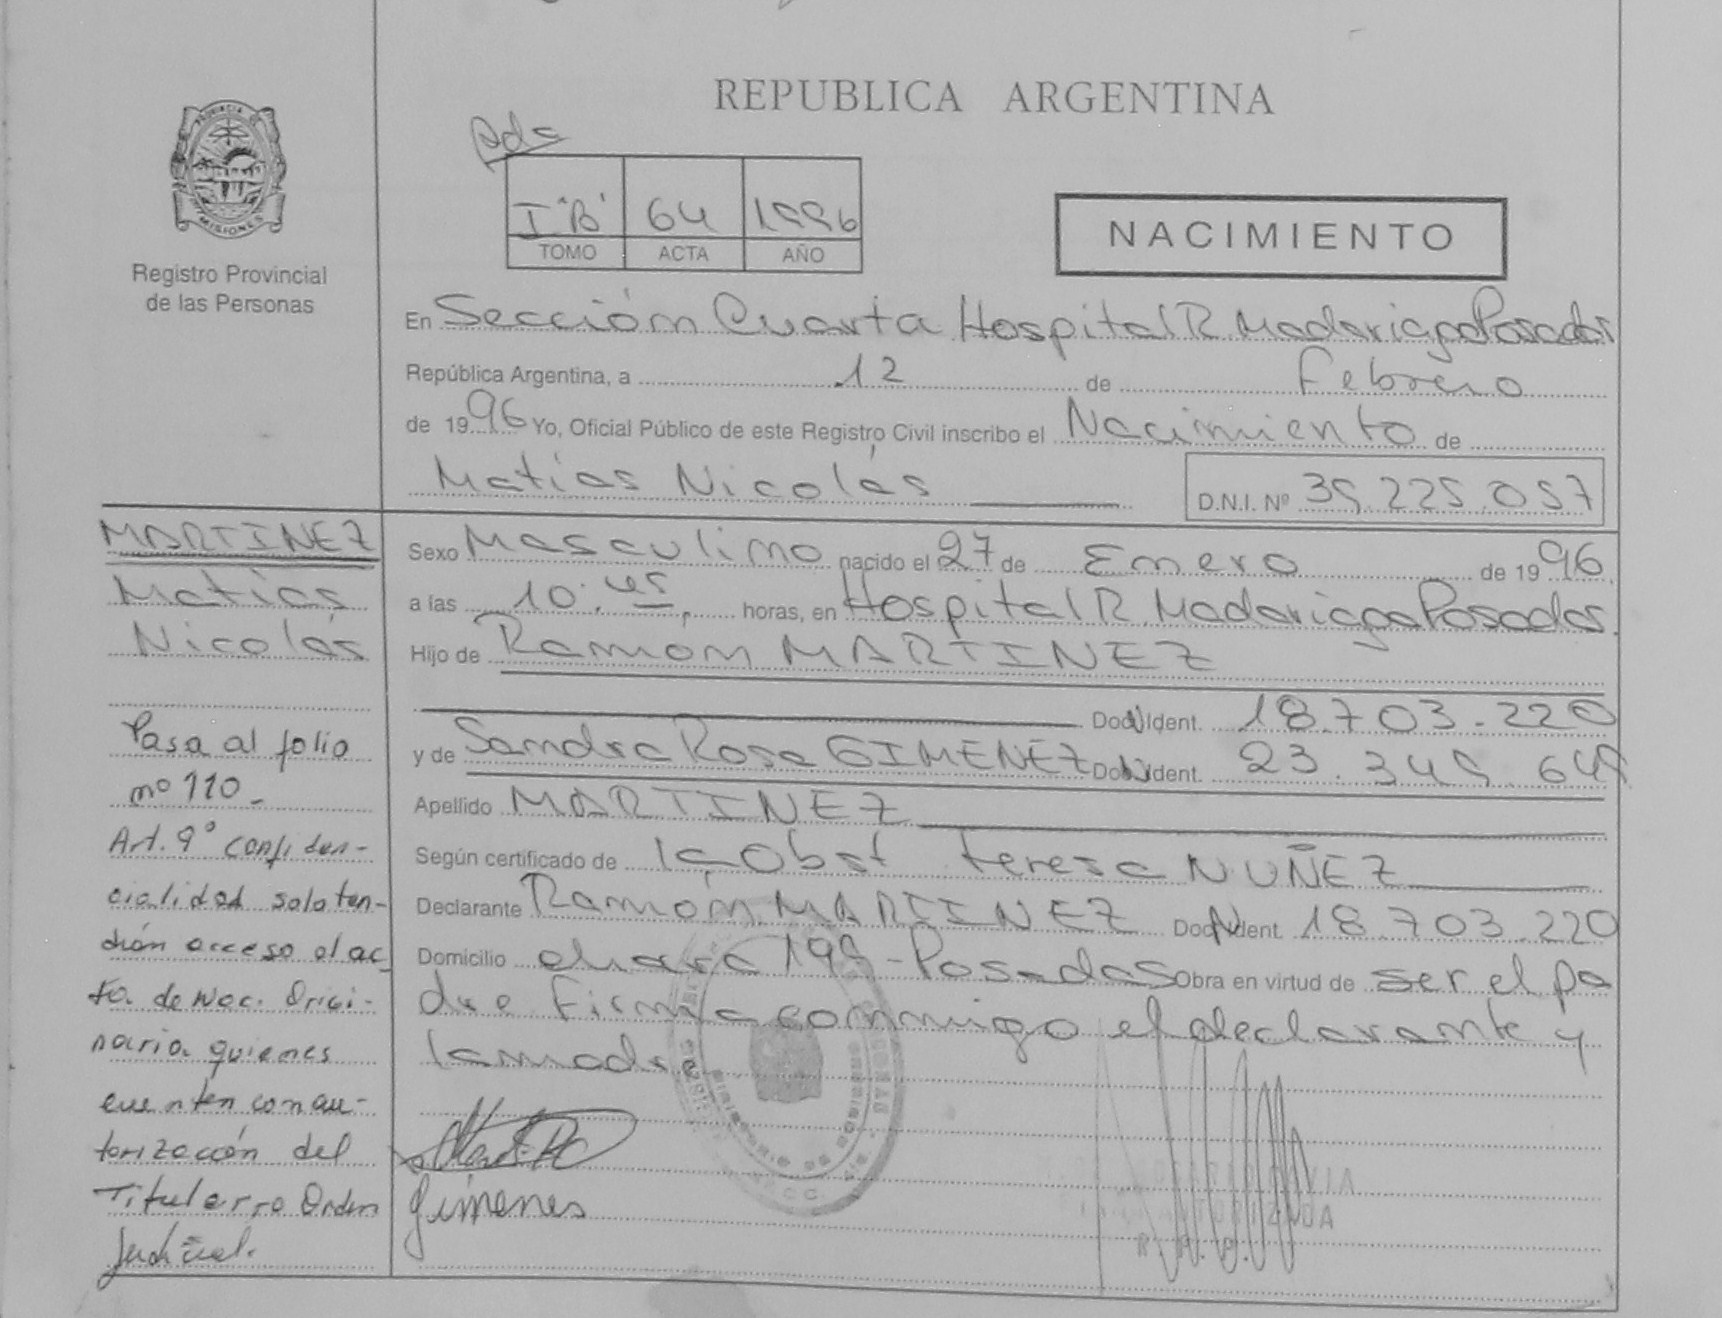 REPUBLICA ARGENTINA
Pdas
I "B" 64 1996
TOMO ACTA AÑO
NACIMIENTO
PROVINCIA DE MISIONES
Registro Provincial
de las Personas
En Sección Cuarta Hospital R. Madariaga Posadas
República Argentina, a 12 de Febrero
de 1996 Yo, Oficial Público de este Registro Civil inscribo el Nacimiento de
Matías Nicolás D.N.I. Nº 39.225.057
Sexo Masculino nacido el 27 de Enero de 1996
a las 10:45, horas, en Hospital R. Madariaga Posadas.
Hijo de Ramón MARTINEZ
Doc. Ident. 18.703.220
y de Sandra Rosa GIMENEZ Doc. Ident. 23.349.649
Apellido MARTINEZ
Según certificado de la Obst Teresa NUÑEZ
Declarante Ramón MARTINEZ Doc. Ident. 18.703.220
Domicilio chacra 199 - Posadas Obra en virtud de ser el pa
dre Firma conmigo el declarante y
la madre
Gimenes
MARTINEZ
Matías
Nicolás
Pasa al folio
nº 110_
Art. 9º confiden-
cialidad solo ten-
drán acceso al ac
ta. de Nac. Origi-
naria quienes
cuenten con au-
torización del
Titular o Orden
Judicial.